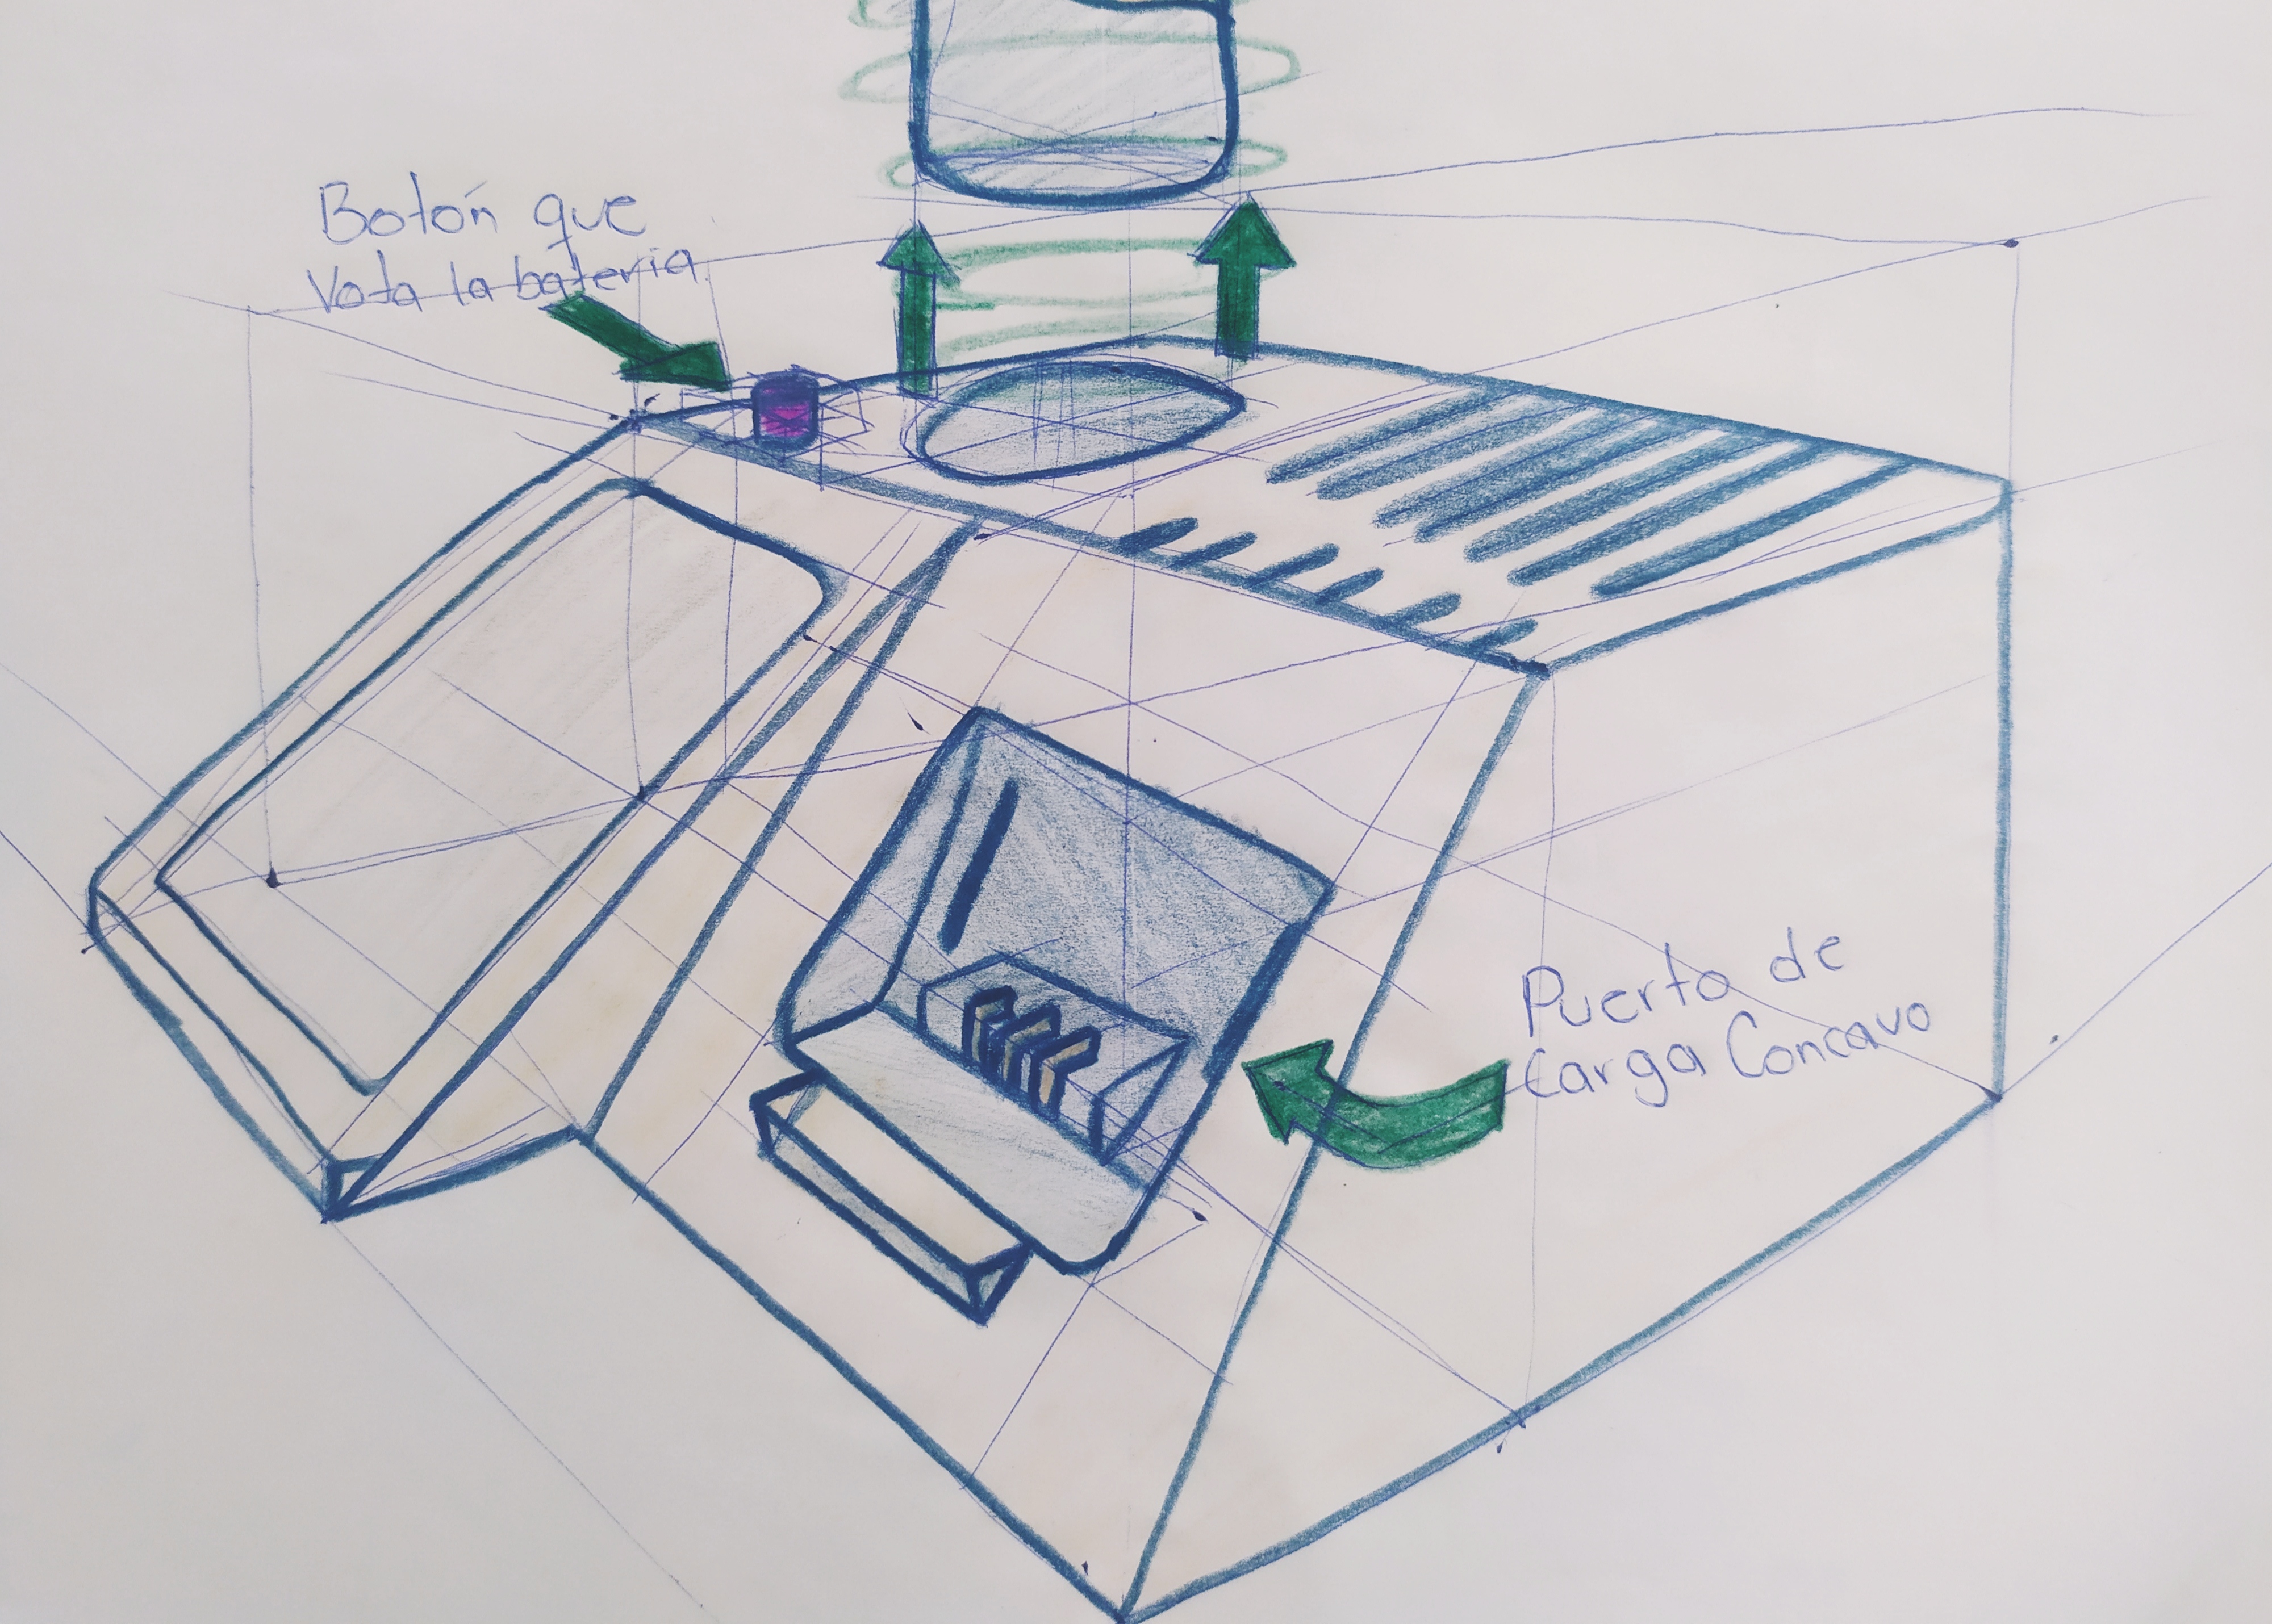 Botón que
Vota la bateria.
Puerto de
Carga Concavo